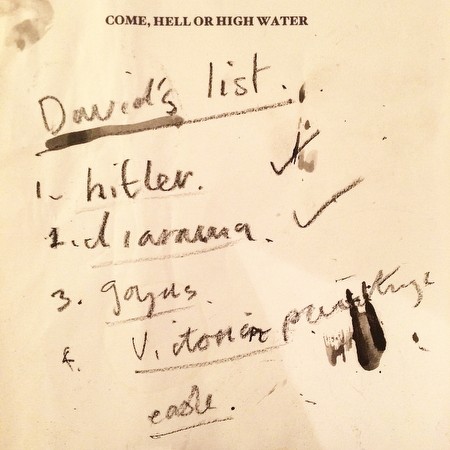 COME, HELL OR HIGH WATER
David's list.
1. hitler.
2. diarama.
3. goyas.
4. Victorian
easle.